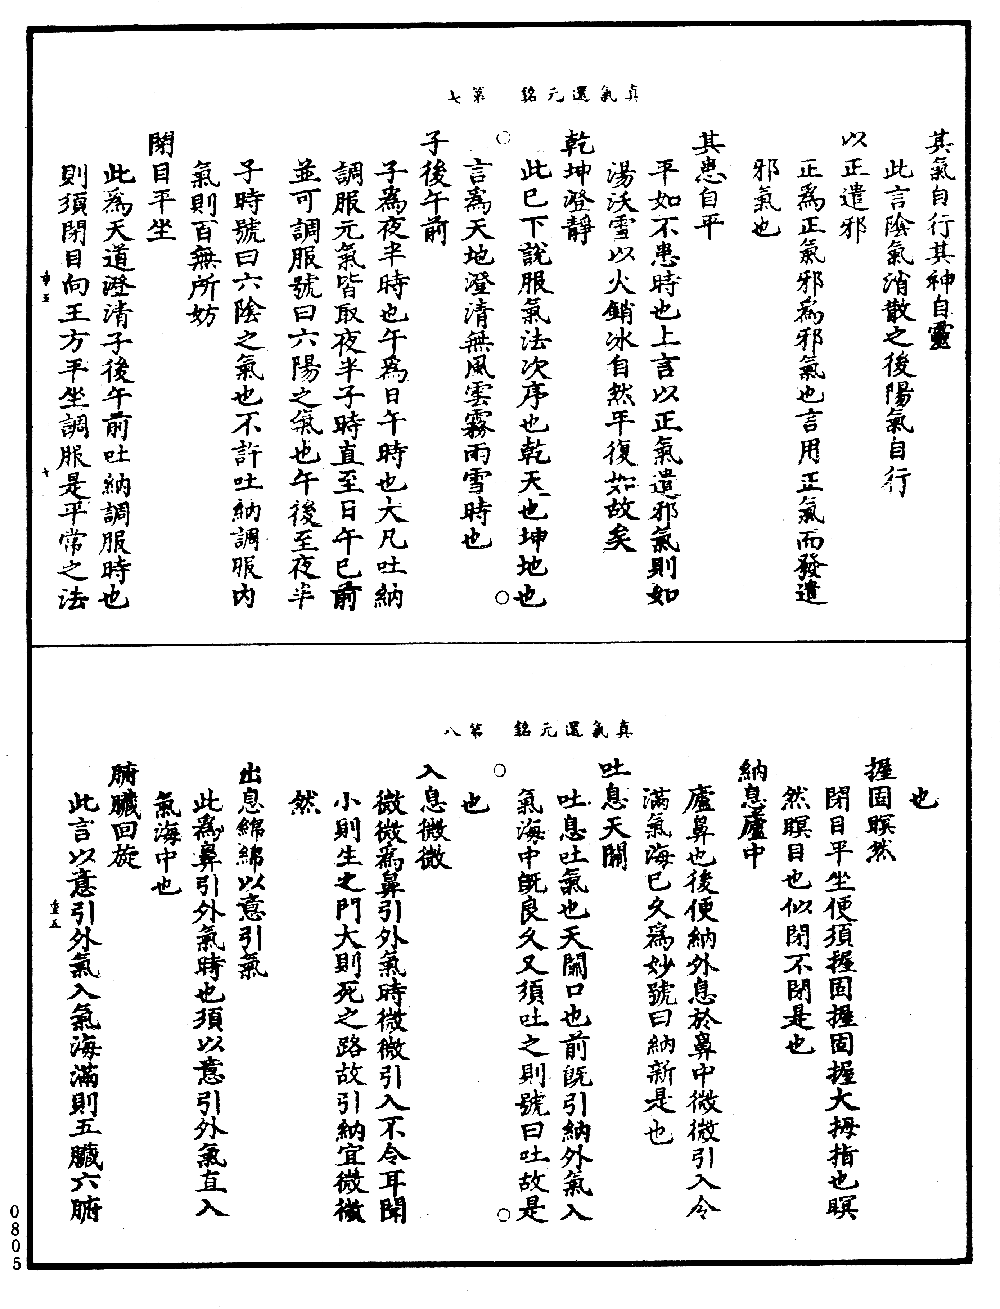 真氣還元銘　第七
其氣自行其神自靈
此言陰氣消散之後陽氣自行
以正遣邪
正為正氣邪為邪氣也言用正氣而發遣
邪氣也
其患自平
平如不患時也上言以正氣遣邪氣則如
湯沃雪以火銷冰自然平復如故矣
乾坤澄靜
此已下說服氣法次序也乾天也坤地也
言為天地澄清無風雲霧雨雪時也
子後午前
子為夜半時也午為日午時也大凡吐納
調服元氣皆取夜半子時直至日午已前
並可調服號曰六陽之氣也午後至夜半
子時號曰六陰之氣也不許吐納調服內
氣則百無所妨
閉目平坐
此為天道澄清子後午前吐納調服時也
則須閉目向王方平坐調服是平常之法
真氣還元銘　第八
也
握固瞑然
閉目平坐便須握固握固握大拇指也瞑
然瞑目也似閉不閉是也
納息廬中
廬鼻也後便納外息於鼻中微微引入令
滿氣海已久為妙號曰納新是也
吐息天關
吐息吐氣也天關口也前既引納外氣入
氣海中既良久又須吐之則號曰吐故是
也
入息微微
微微為鼻引外氣時微微引入不令耳聞
小則生之門大則死之路故引納宜微微
然
出息綿綿以意引氣
此為鼻引外氣時也須以意引外氣直入
氣海中也
腑臟回旋
此言以意引外氣入氣海滿則五臟六腑
0805